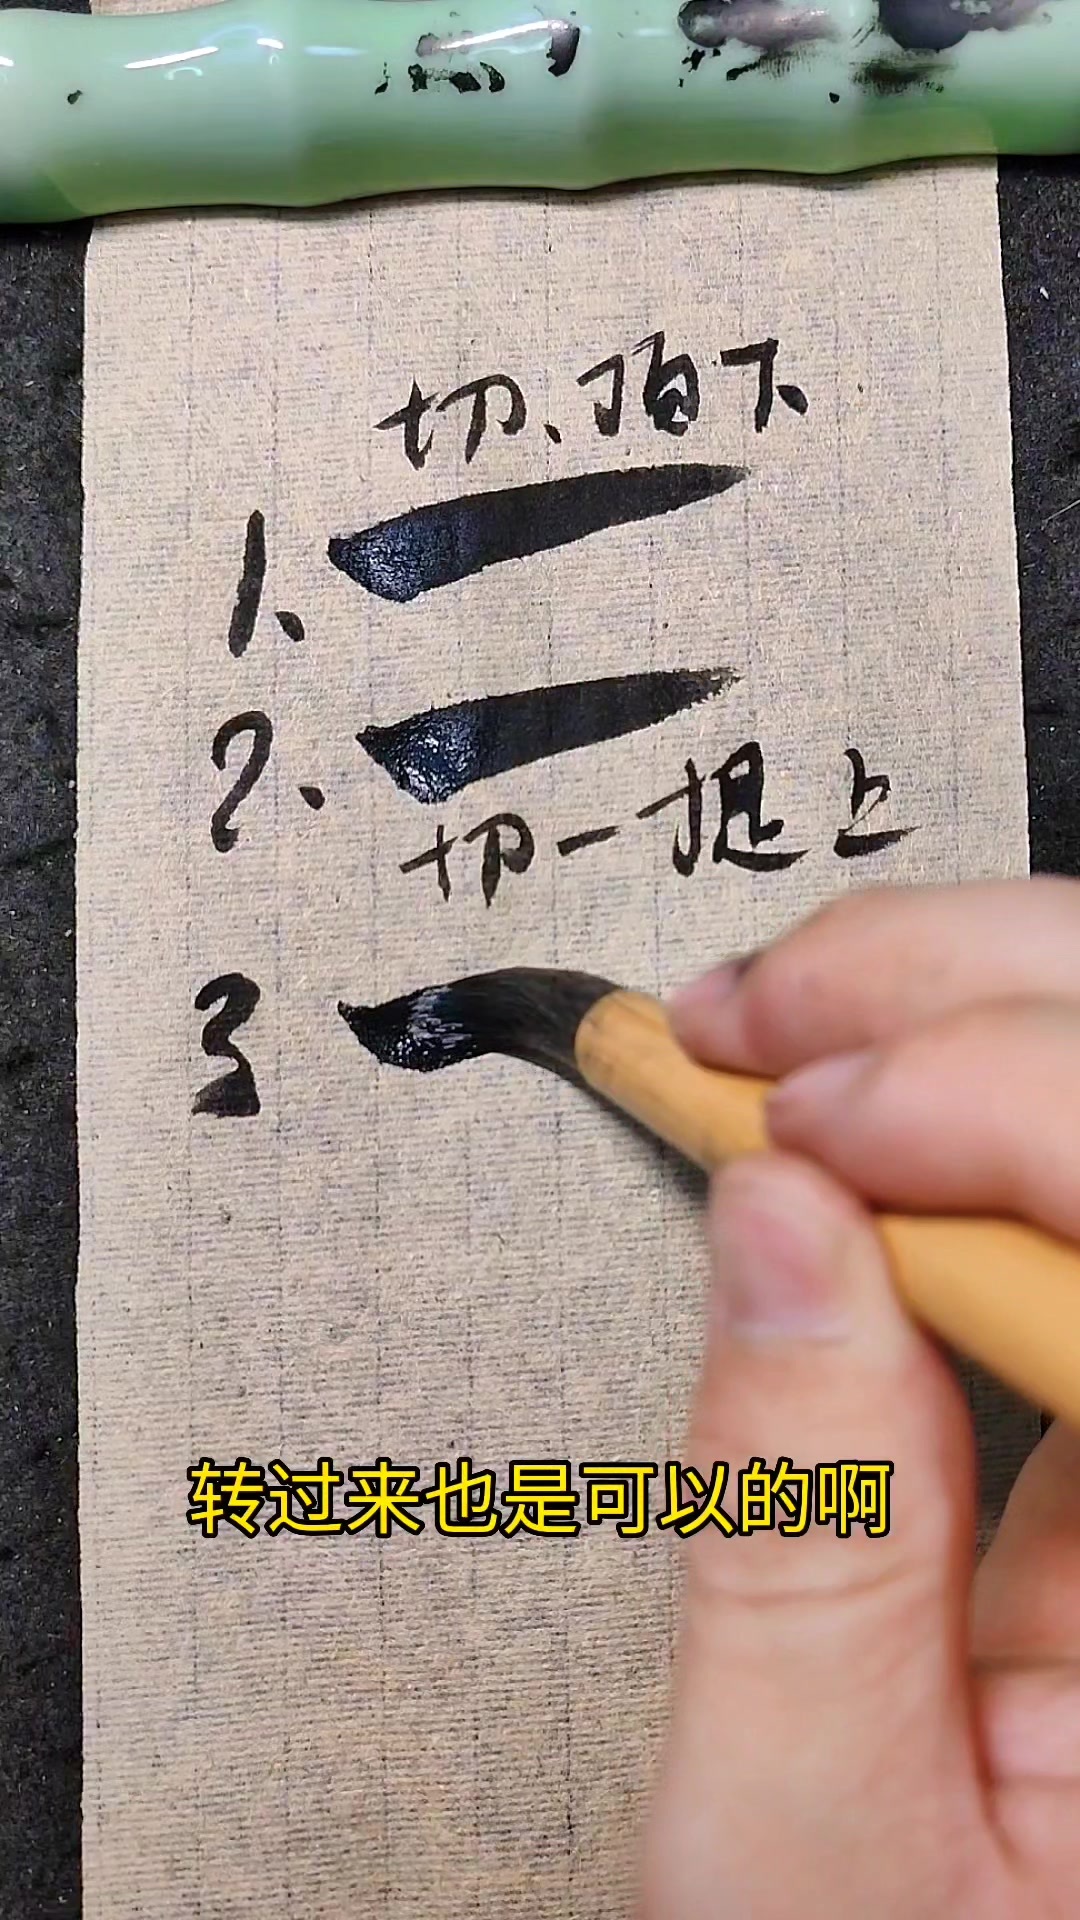 切、顶下
1、
2、
切一提上
3
转过来也是可以的啊